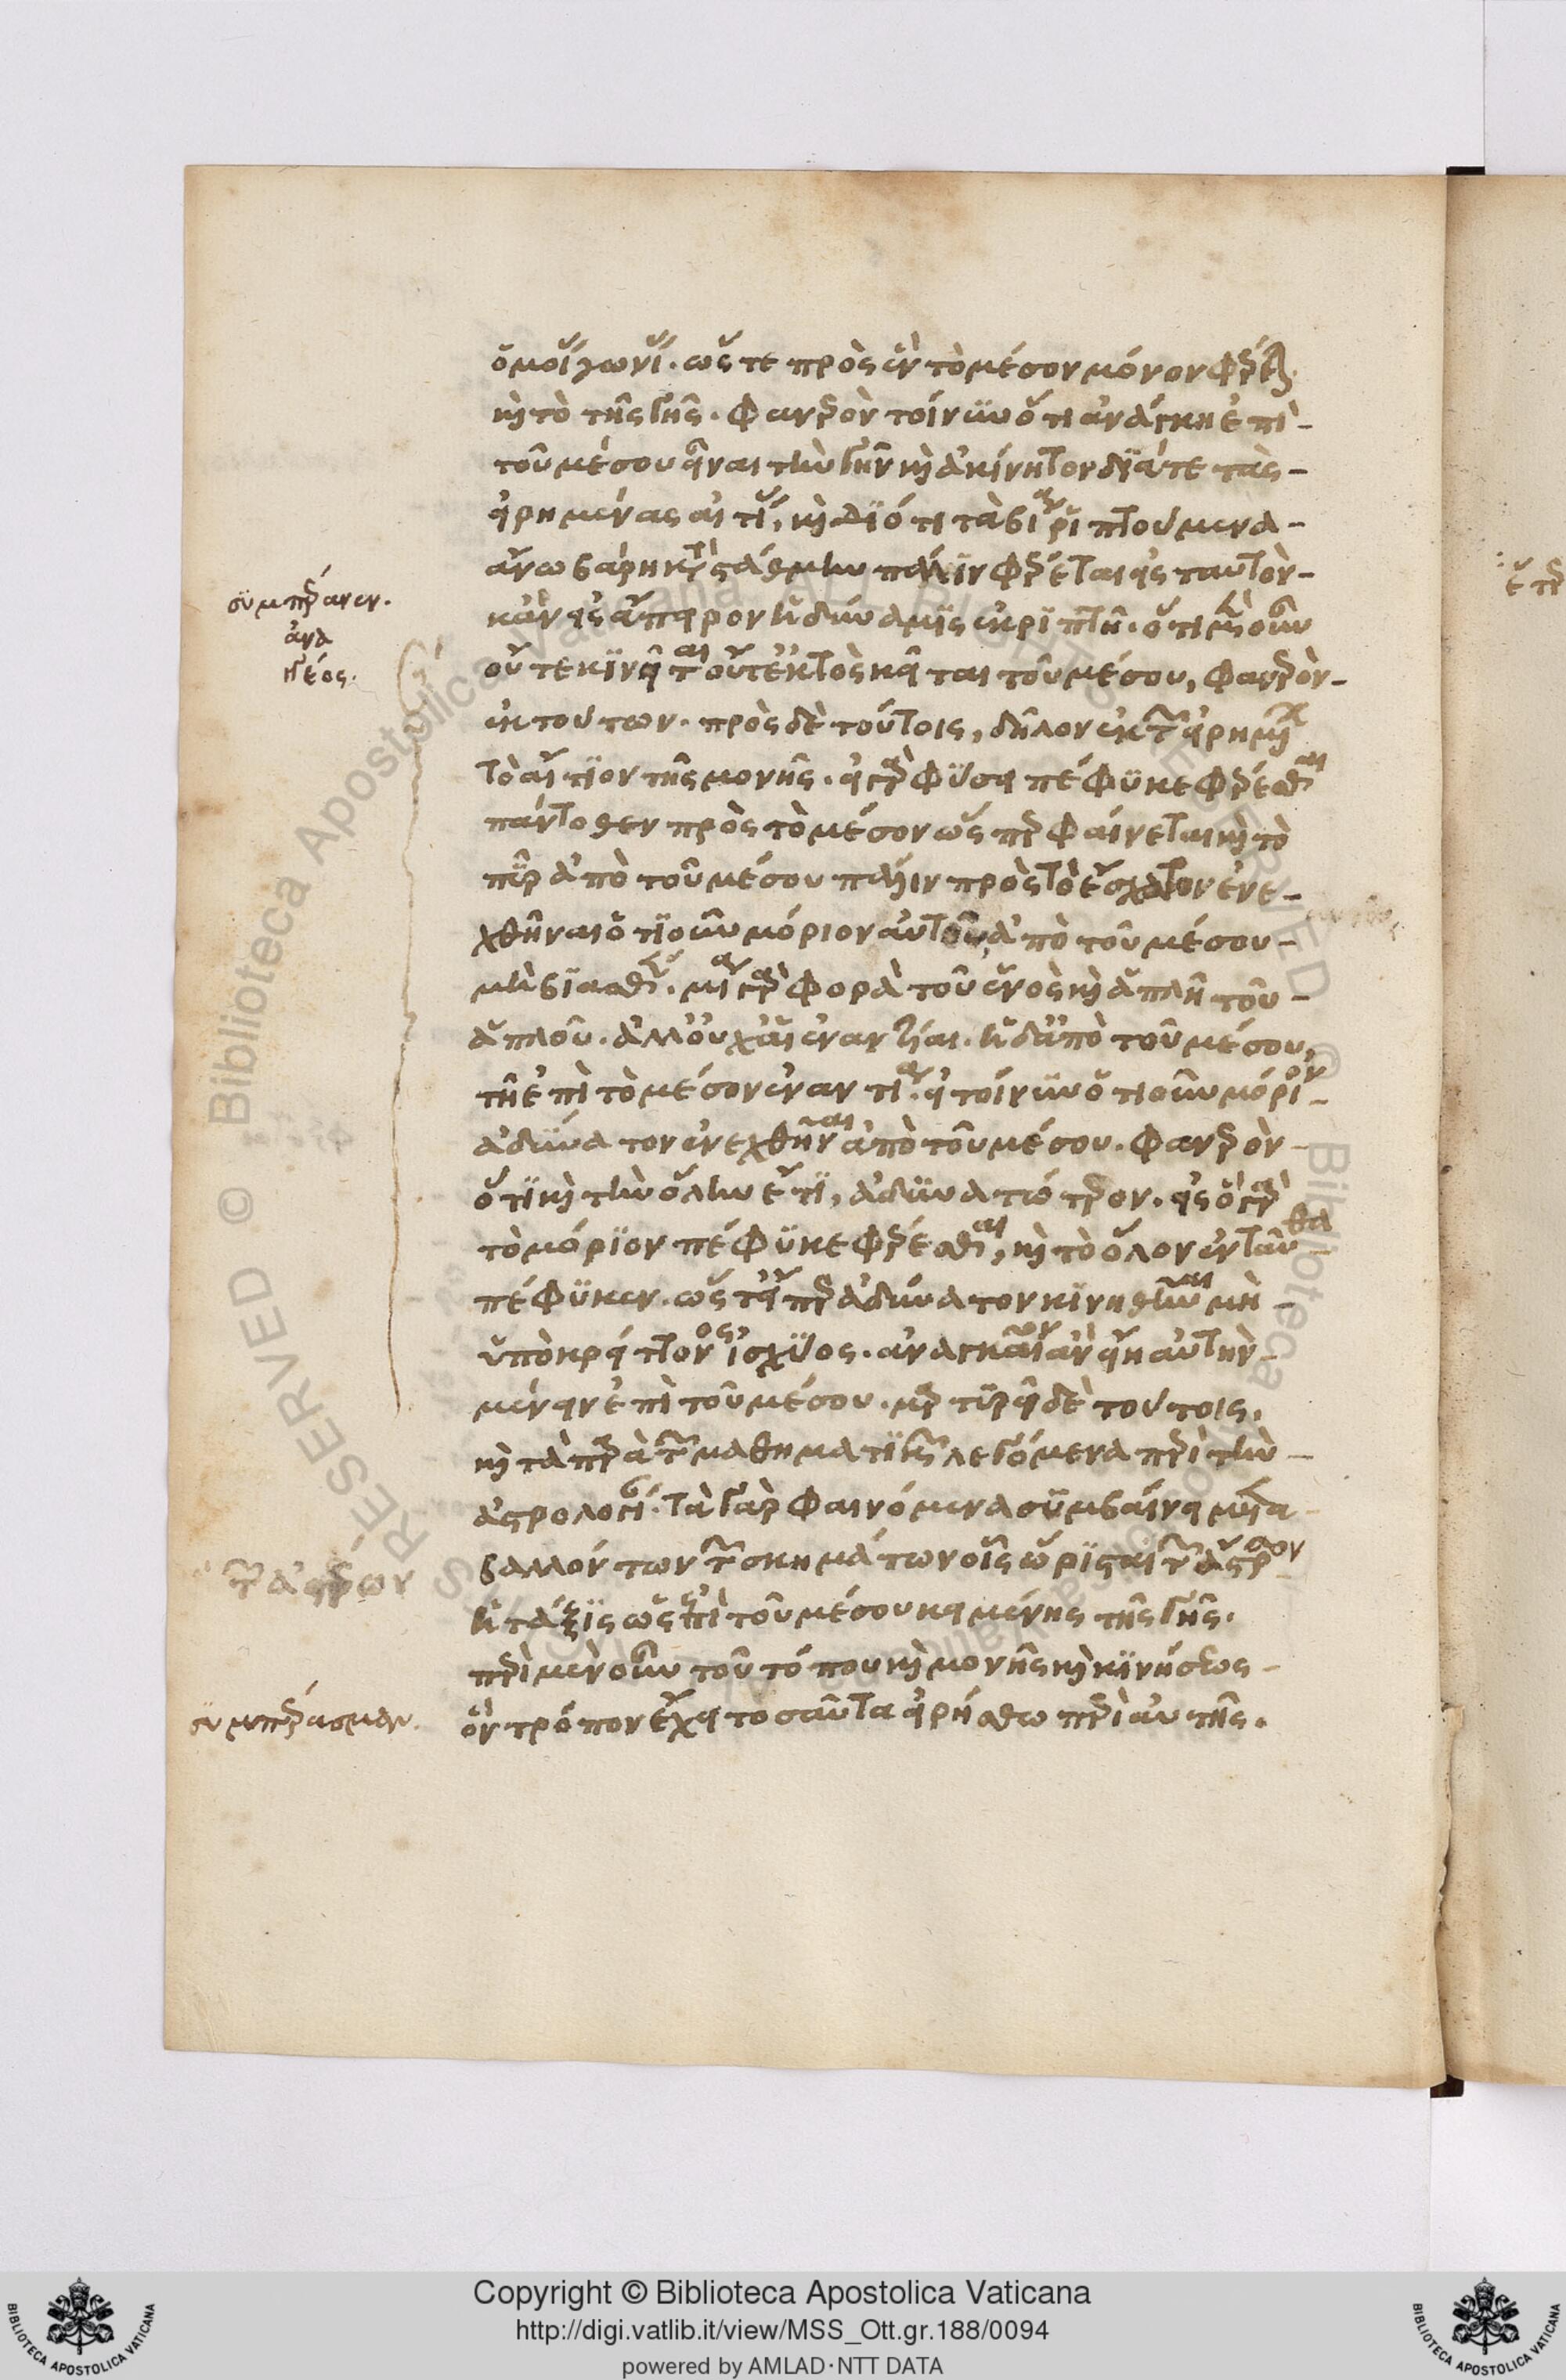 σϋμπέρανεν.
ἀνα
γκέος.
τῶν ἀστέρων
συμπέρασμαν.
ὁμοίας γωνίας. ὥς τε πρὸς ἓν τὸ μέσον μόνον φέρεται
καὶ τὸ τῆς γῆς. φανερὸν τοίνϋν ὅτι ἀνάγκη ἐπὶ -
τοῦ μέσου εἶναι τὴν γῆν καὶ ἀκίνητον δϊά τε τὰς -
εἰρημένας αἰτίας, καὶ δϊότι τὰ βίαν ῥϊπτούμενα -
ἄνω βάρη κατὰ στάθμην πάλϊν φέρεται εἰς ταυτὸν -
κἂν εἰς ἄπειρον ἡ δύναμϊς ἐκρϊπτῆ. ὅτι μὲν οὖν
οὔτε κϊνεῖται οὔτ' ἐκτὸς κεῖται τοῦ μέσου, φανερὸν -
ἐκ τούτων. πρὸς δὲ τούτοις, δῆλον ἐκ τῶν εἰρημένων
τὸ αἴτϊον τῆς μονῆς. εἰ γὰρ φύσει πέφϋκε φέρεσθαι
πάντοθεν πρὸς τὸ μέσον ὥσπερ φαίνεται καὶ τὸ
πῦρ ἀπὸ τοῦ μέσου πάλιν πρὸς τὸ ἔσχατον ἐνε -
χθῆναι ὅτϊοῦν μόριον αὐτοῦ, ἀπὸ τοῦ μέσου -
μὴ βϊασθέν. μία γὰρ φορὰ τοῦ ἑνὸς καὶ ἁπλῆ τοῦ -
ἁπλοῦ. ἀλλ' οὐχ' αἱ ἐναντίαι. ἡ δ' ἀπὸ τοῦ μέσου,
τῆ ἐπὶ τὸ μέσον ἐναντία. εἰ τοίνϋν ὅτιοῦν μόριον -
ἀδύνατον ἐνεχθῆναι ἀπὸ τοῦ μέσου. φανερὸν -
ὅτϊ καὶ τὴν ὅλην ἔτϊ, ἀδϋνατώτερον. εἰς ὃ γὰρ
τὸ μόρϊον πέφϋκε φέρεσθαι, καὶ τὸ ὅλον ἐνταῦθα -
πέφϋκεν. ὥστ' εἴπερ ἀδύνατον κϊνηθῆναι μὴ -
ὑπὸ κρείττονος ἰσχϋος. ἀναγκαῖον ἂν εἴη αὐτὴν -
μένειν ἐπὶ τοῦ μέσου. μαρτϋρεῖ δὲ τούτοις,
καὶ τὰ παρὰ τῶν μαθηματϊκῶν λεγόμενα περὶ τὴν -
ἀστρολογίαν. τὰ γὰρ φαινόμενα σϋμβαίνει μετα -
βαλλόντων τῶν σκημάτων οἷς ὥρϊσται τῶν ἄστρων
ἡ τάξϊς ὡς ἐπὶ τοῦ μέσου κειμένης τῆς γῆς.
περὶ μὲν οὖν τοῦ τόπου καὶ μονῆς καὶ κϊνήσεως -
ὃν τρόπον ἔχει τοσαῦτα εἰρήσθω περὶ αὐτῆς.
Copyright © Biblioteca Apostolica Vaticana
http://digi.vatlib.it/view/MSS_Ott.gr.188/0094
powered by AMLAD·NTT DATA